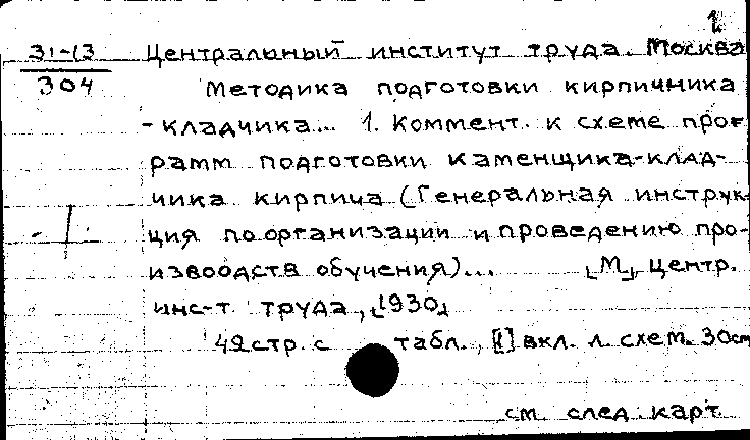 1.
31-13
304
Центральный институт труда. Москва
Методика подготовки кирпичника
-кладчика... 1. Коммент. к схеме прог
рамм подготовки каменщика-клад-
чика кирпича (Генеральная инструк
ция по организации и проведению про-
извоодств обучения)... [М], Центр.
инс-т труда, [1930]
49стр. с табл., [1] вкл. л. схем. 30см
см. след. карт